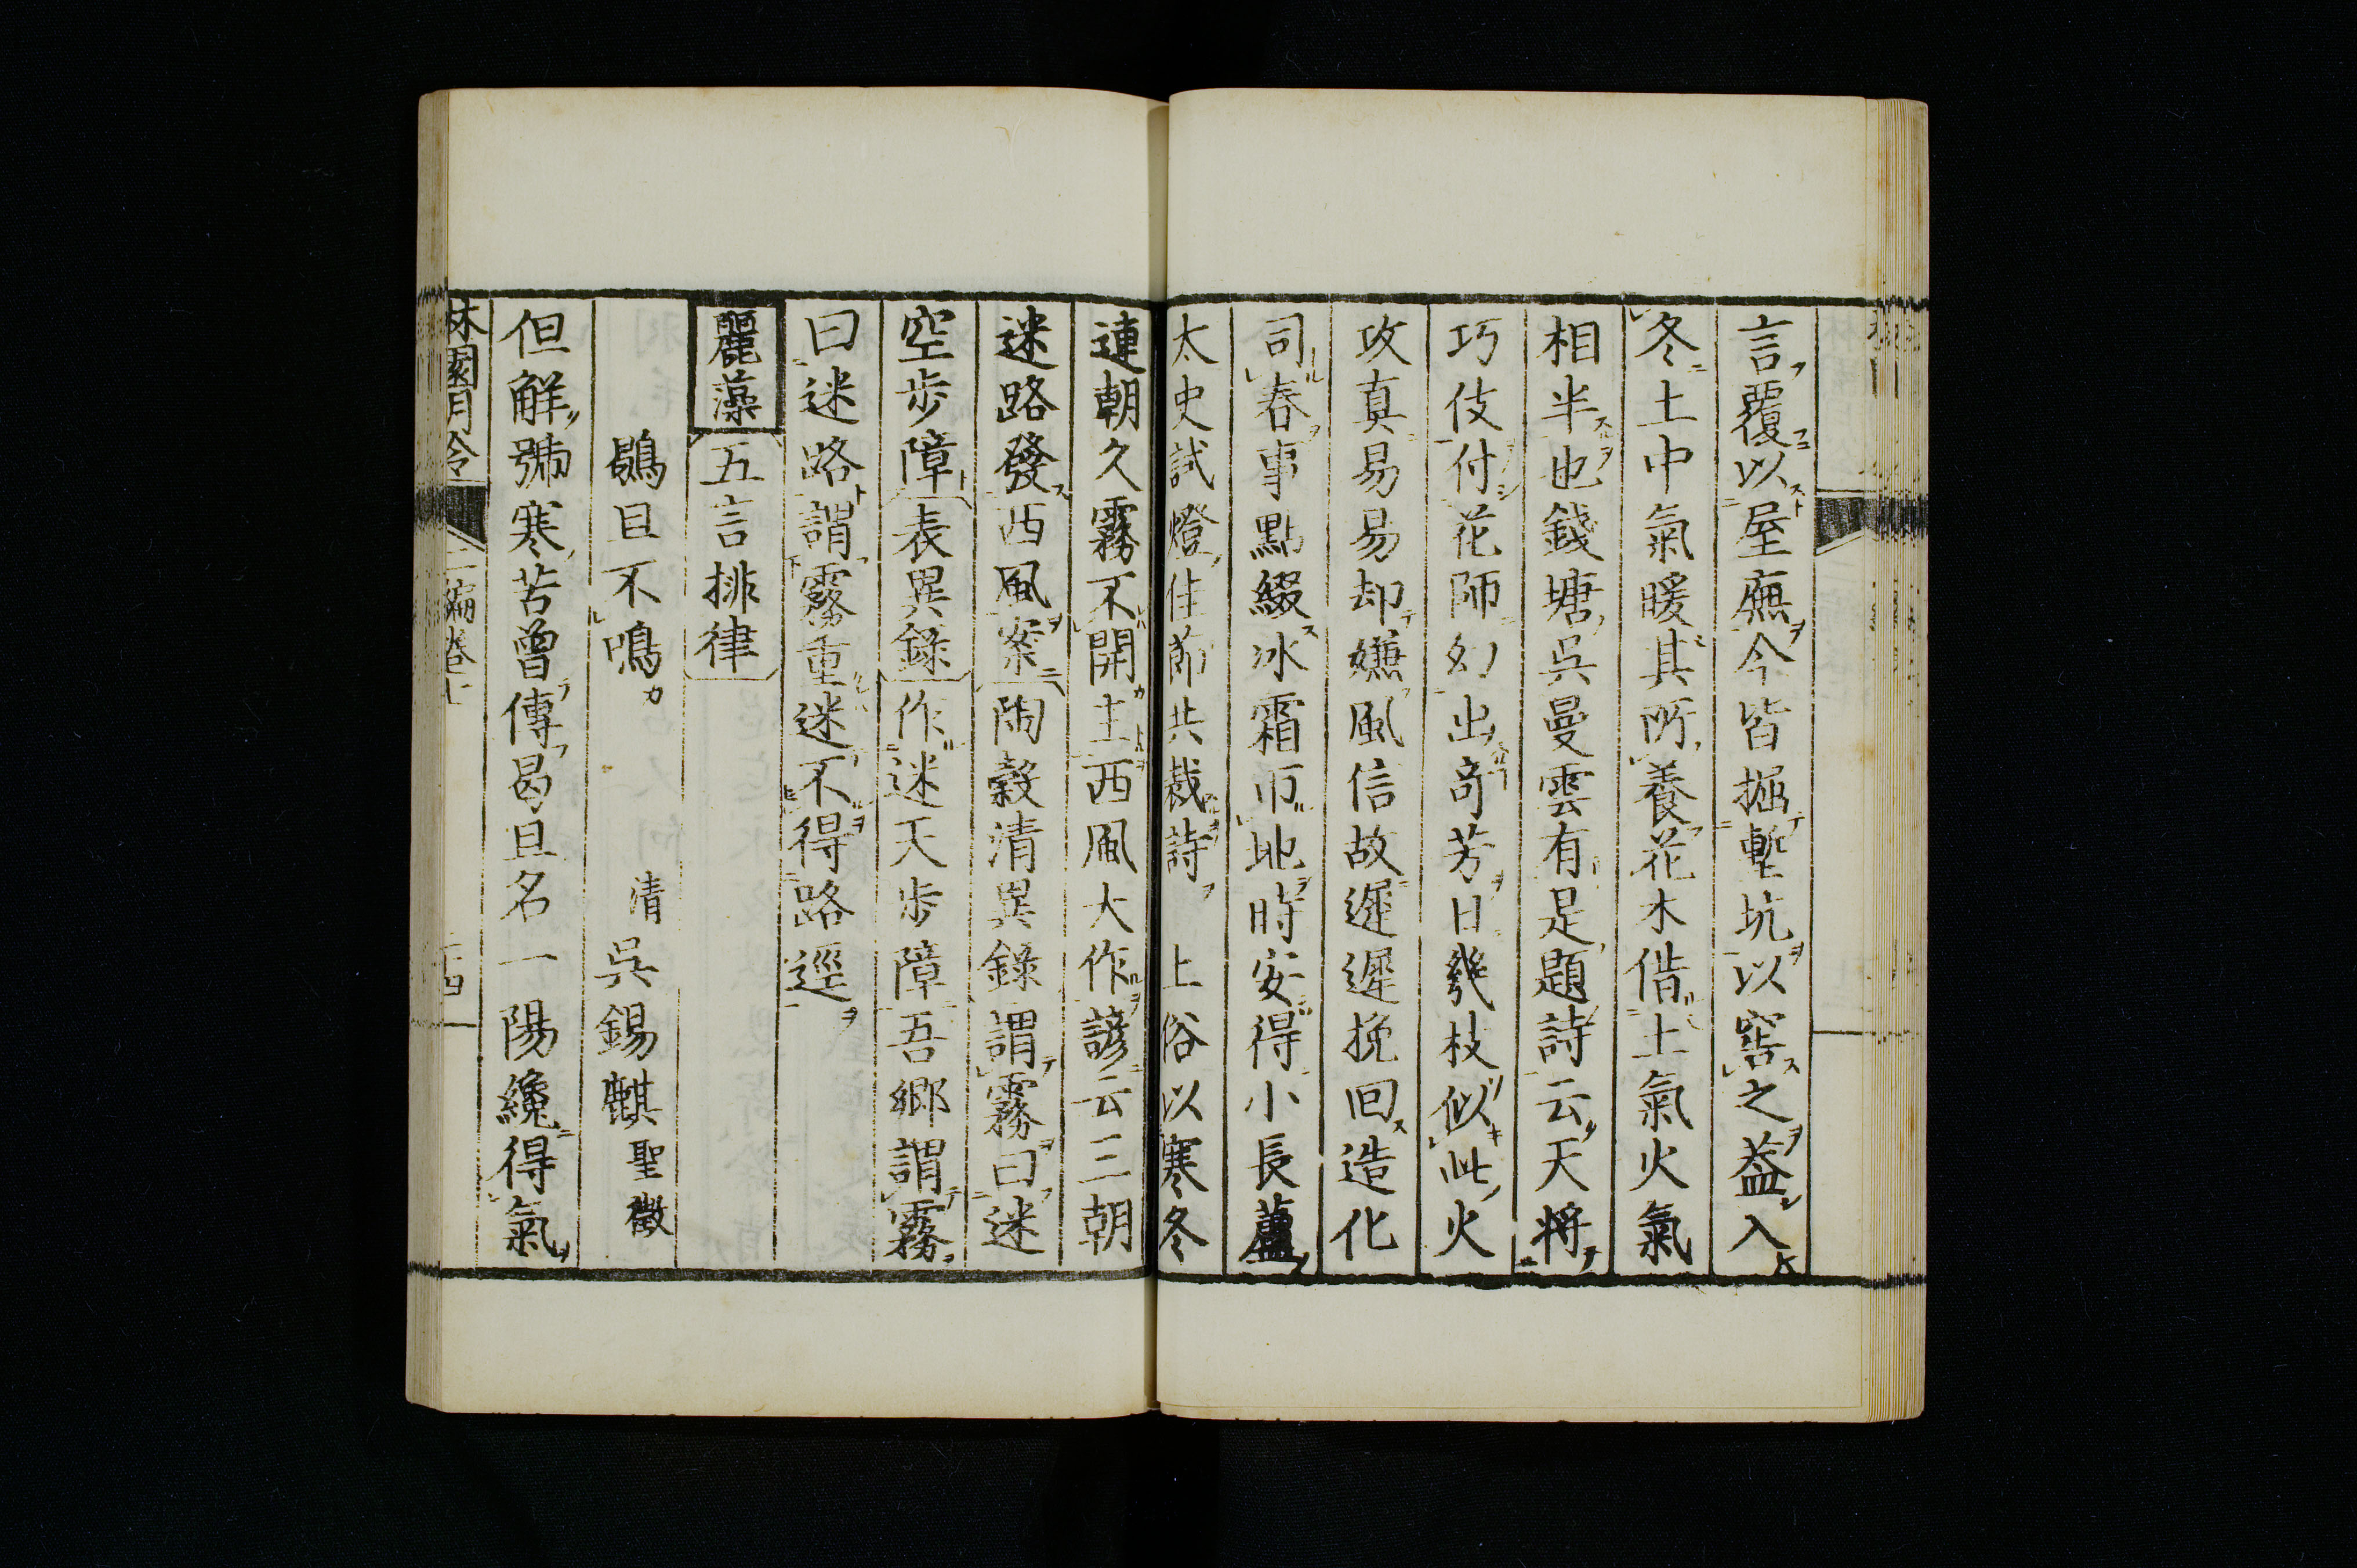 言覆以屋廡今皆掘塹坑以窖之葢入
冬土中氣暖其所養花木偕土氣火氣
相半也錢塘吳曼雲有是題詩云天將
巧伎付花師幻出奇芳日幾枝似此火
攻真易易却嫌風信故遲遲挽回造化
司春事點綴冰霜帀地時安得小長蘆
太史試燈佳節共裁詩　土俗以寒冬
連朝久霧不開主西風大作諺云三朝
迷路發西風案陶穀清異錄謂霧曰迷
空步障表異錄作迷天步障吾鄉謂霧
曰迷路謂霧重迷不得路逕
麗藻　五言排律
鶡旦不鳴　清　吳錫麒　聖徵
但解號寒苦曾傳曷旦名一陽纔得氣
林園月令　二編卷十